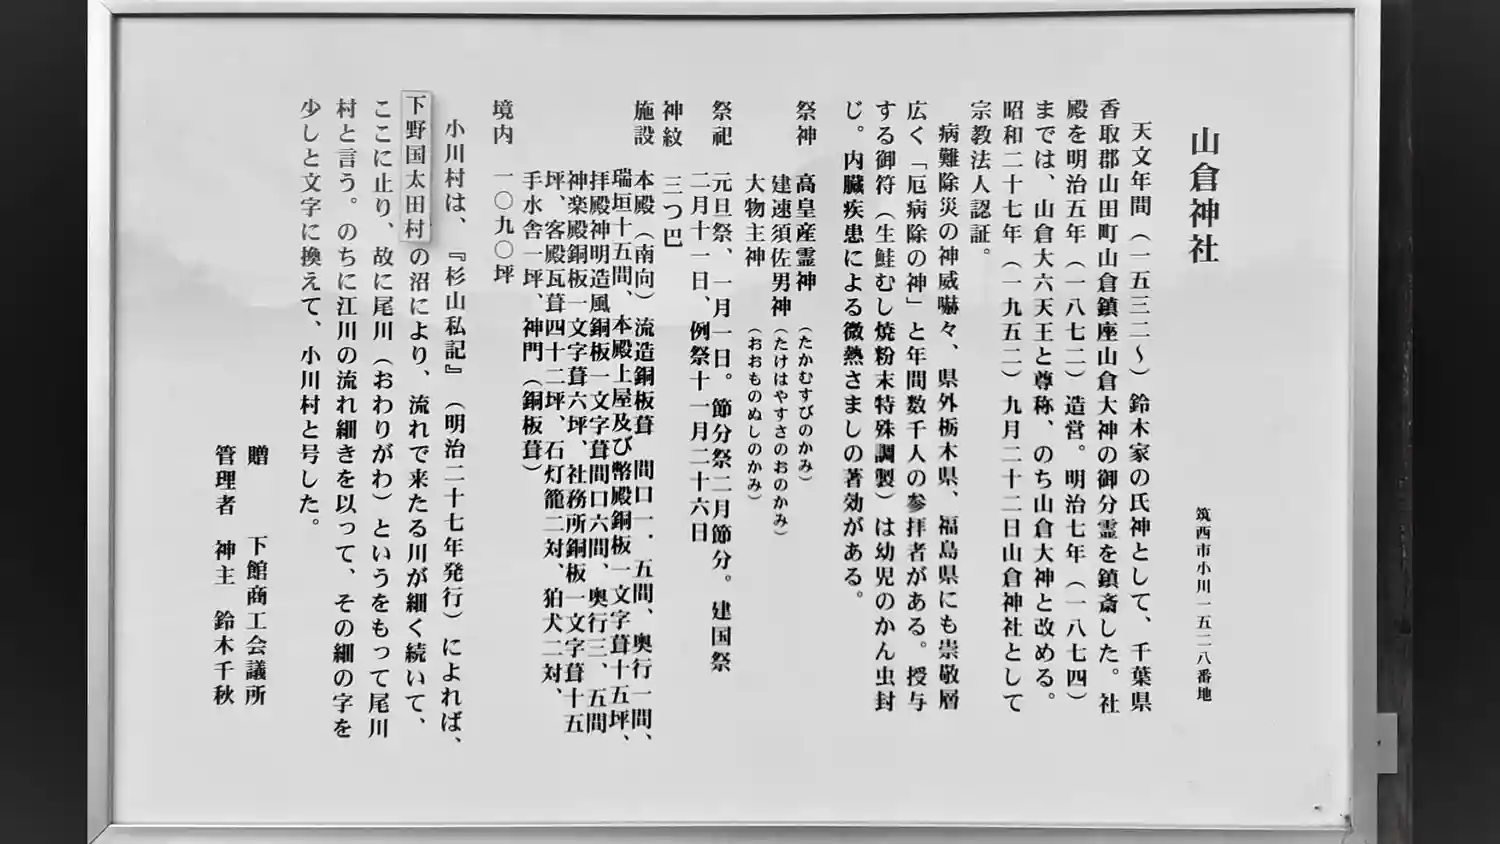 山倉神社
筑西市小川一五二八番地
天文年間（一五三二〜）鈴木家の氏神として、千葉県
香取郡山田町山倉鎮座山倉大神の御分霊を鎮斎した。社
殿を明治五年（一八七二）造営。明治七年（一八七四）
までは、山倉大六天王と尊称、のち山倉大神と改める。
昭和二十七年（一九五二）九月二十二日山倉神社として
宗教法人認証。
病難除災の神威嚇々、県外栃木県、福島県にも崇敬層
広く「厄病除の神」と年間数千人の参拝者がある。授与
する御符（生鮭むし焼粉末特殊調製）は幼児のかん虫封
じ。内臓疾患による微熱さましの著効がある。
祭神　高皇産霊神（たかむすびのかみ）
建速須佐男神（たけはやすさのおのかみ）
大物主神（おおものぬしのかみ）
祭祀　元旦祭、一月一日。節分祭二月節分。建国祭
二月十一日、例祭十一月二十六日
神紋　三つ巴
施設　本殿（南向）流造銅板葺　間口一．五間、奥行一間、
瑞垣十五間、本殿上屋及び幣殿銅板一文字葺十五坪、
拝殿神明造風銅板一文字葺間口六間、奥行三、五間
神楽殿銅板一文字葺六坪、社務所銅板一文字葺十五
坪、客殿瓦葺四十二坪、石灯籠二対、狛犬二対、
手水舎一坪、神門（銅板葺）
境内　一〇九〇坪
小川村は、『杉山私記』（明治二十七年発行）によれば、
下野国太田村の沼により、流れで来たる川が細く続いて、
ここに止り、故に尾川（おわりがわ）というをもって尾川
村と言う。のちに江川の流れ細きを以って、その細の字を
少しと文字に換えて、小川村と号した。
贈　下館商工会議所
管理者　神主　鈴木千秋